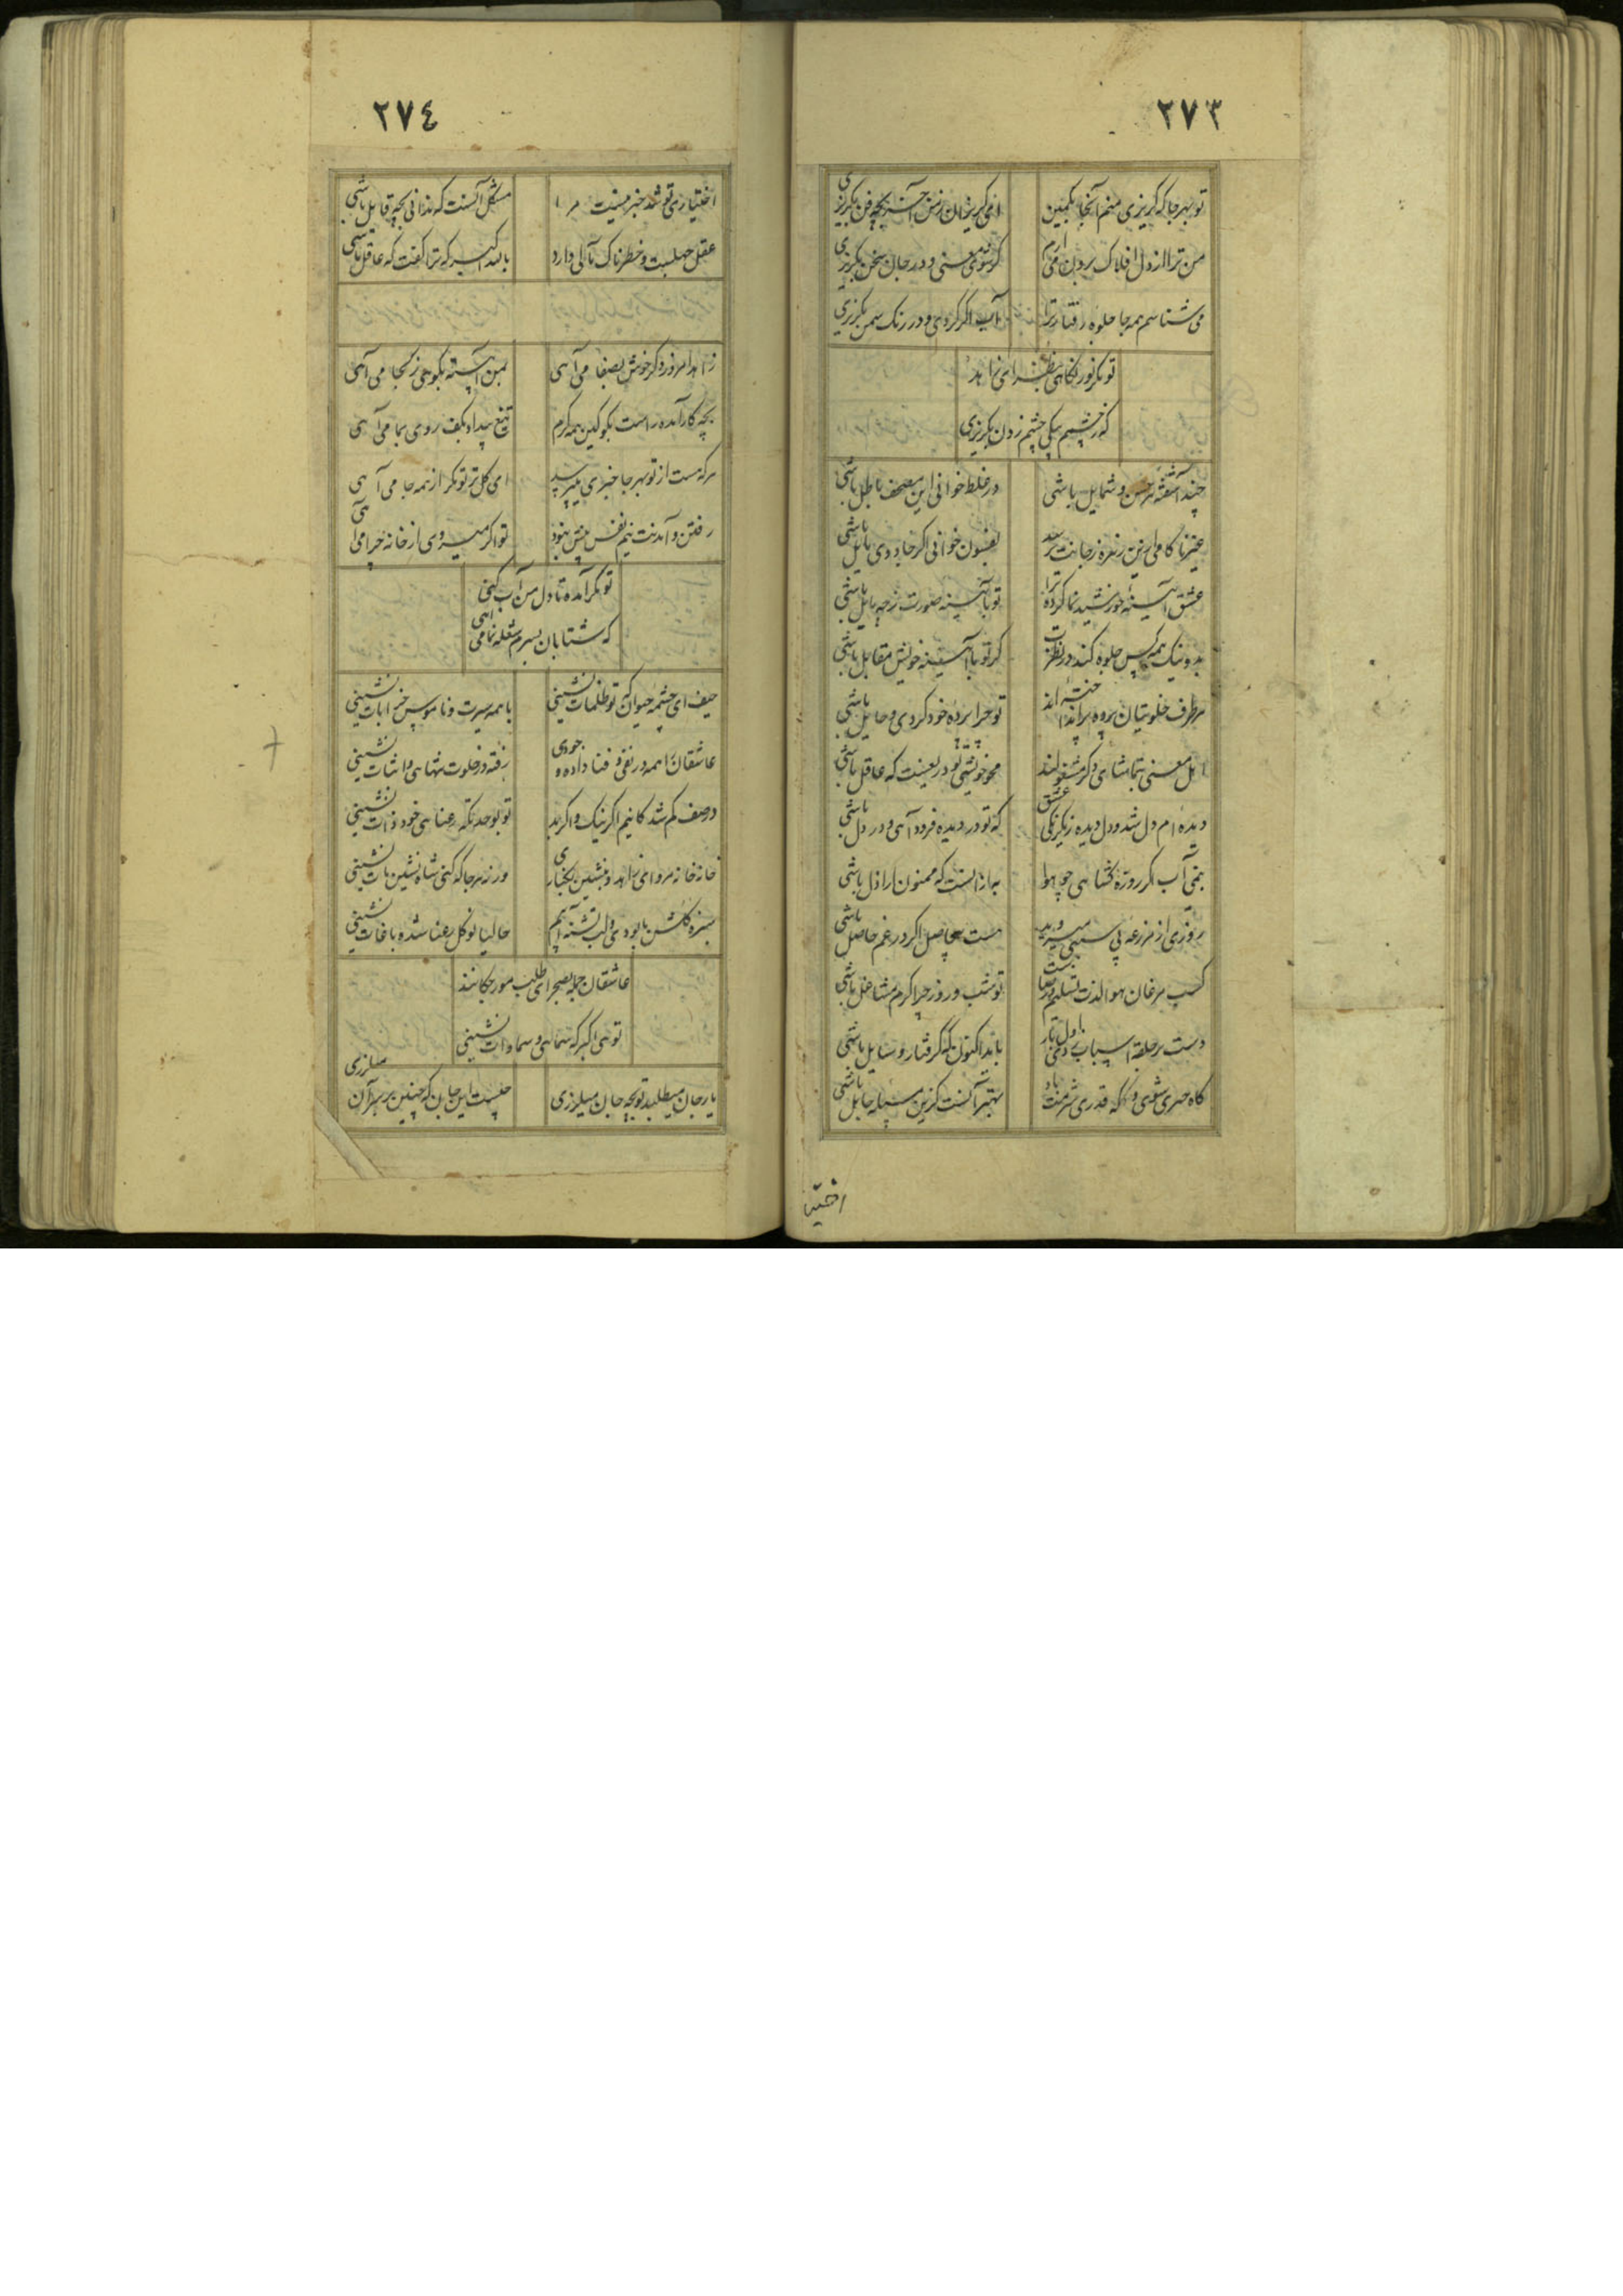 ۲۷۳
تو بهر جا که گریزی منم آنجا بکمین
من ترا از دل افلاک برون می آرم
می شناسم همه جا جلوه رفتار ترا
آب اگر گردی و در رنگ سمن بگریزی
تو مگر نور نگاهی ای زاهد
که ز چشمم بیکی چشم زدن بگریزی
چند آشفته هر حسن و شمایل باشی
در غلط خوانی این مصحف باطل باشی
بفسون خوانی اگر جادوی بابل باشی
عشق آیینه خورشید نما کرده ترا
تو بآیینه صورت ز چه مایل باشی
بد و نیک همه کس جلوه کند در نظرت
گر تو با آیینه خویش مقابل باشی
هر طرف خلوتیان پرده برانداخته اند
تو چرا پرده خود گردی و حایل باشی
اهل معنی بتماشای دگر مشغولند
محو خویشی تو در یعینت که عاقل باشی
دیده ام دل شد و دل دیده ز یکرنگی عشق
که تو در دیده فرود آیی و در دل باشی
بنمی آب اگر روزه گشایی چو هوا
به از آنست که ممنون اراذل باشی
روزی از مزرعه بی سببی میروید
هست بیحاصل اگر در غم حاصل باشی
کسب مرغان هوا لذت تسلیم و رضاست
تو شب و روز چرا گرم مشاغل باشی
دست بر حلقه اسباب زدی اول بار
باید اکنون که گرفتار وسایل باشی
بهتر آنست کزین حایل باشی
اختیا
۲۷۴
اختیاری تو شد خبر نیست مرا
مشکل آنست که ندانی بچه قابل باشی
عقل جهلیست و خطرناک مآلی دارد
بالله اکبر که ترا گفت که عاقل باشی
زاهد امروز دگر خوش بصفا می آیی
بمن آهسته بگویی ز کجا می آیی
بچه کار آمده راست بگو کین همه گرم
تیغ بیداد بکف روی بما می آیی
هر که هست از تو بهر جا خبری میپرسد
ای گل تر تو مگر از همه جا می آیی
رفتن و آمدنت نیم نفس بیش نبود
تو اگر میروی از خانه چرا می آیی
تو مگر آمده تا دل من آب کنی
که شتابان بسرم شعله نما می آیی
حیف ای چشمه حیوان که تو ظلمات نشینی
با همه سیرت و ناموس خرابات نشینی
عاشقان را همه در نفی و فنا داده وجودی
رفته در خلوت تنهایی و اثبات نشینی
در صف گم شدگانیم اگر نیک و اگر بد
تو بوحدتکه رعنایی خود ذات نشینی
خانه خانه مرو ای زاهد و بنشین بکناری
ورنه هر جا که کنی شاه نشین مات نشینی
سبزه گلشن ما بودی و لب تشنه آبیم
حالیا نو گل رعنا شده باغات نشینی
عاشقان جمله بصحرای طلب مورچگانند
تویی اکبر که سمایی و سماوات نشینی
یار جان میطلبد تو بچه جان میلرزی
چیست این جان که چنین بر سر آن میلرزی